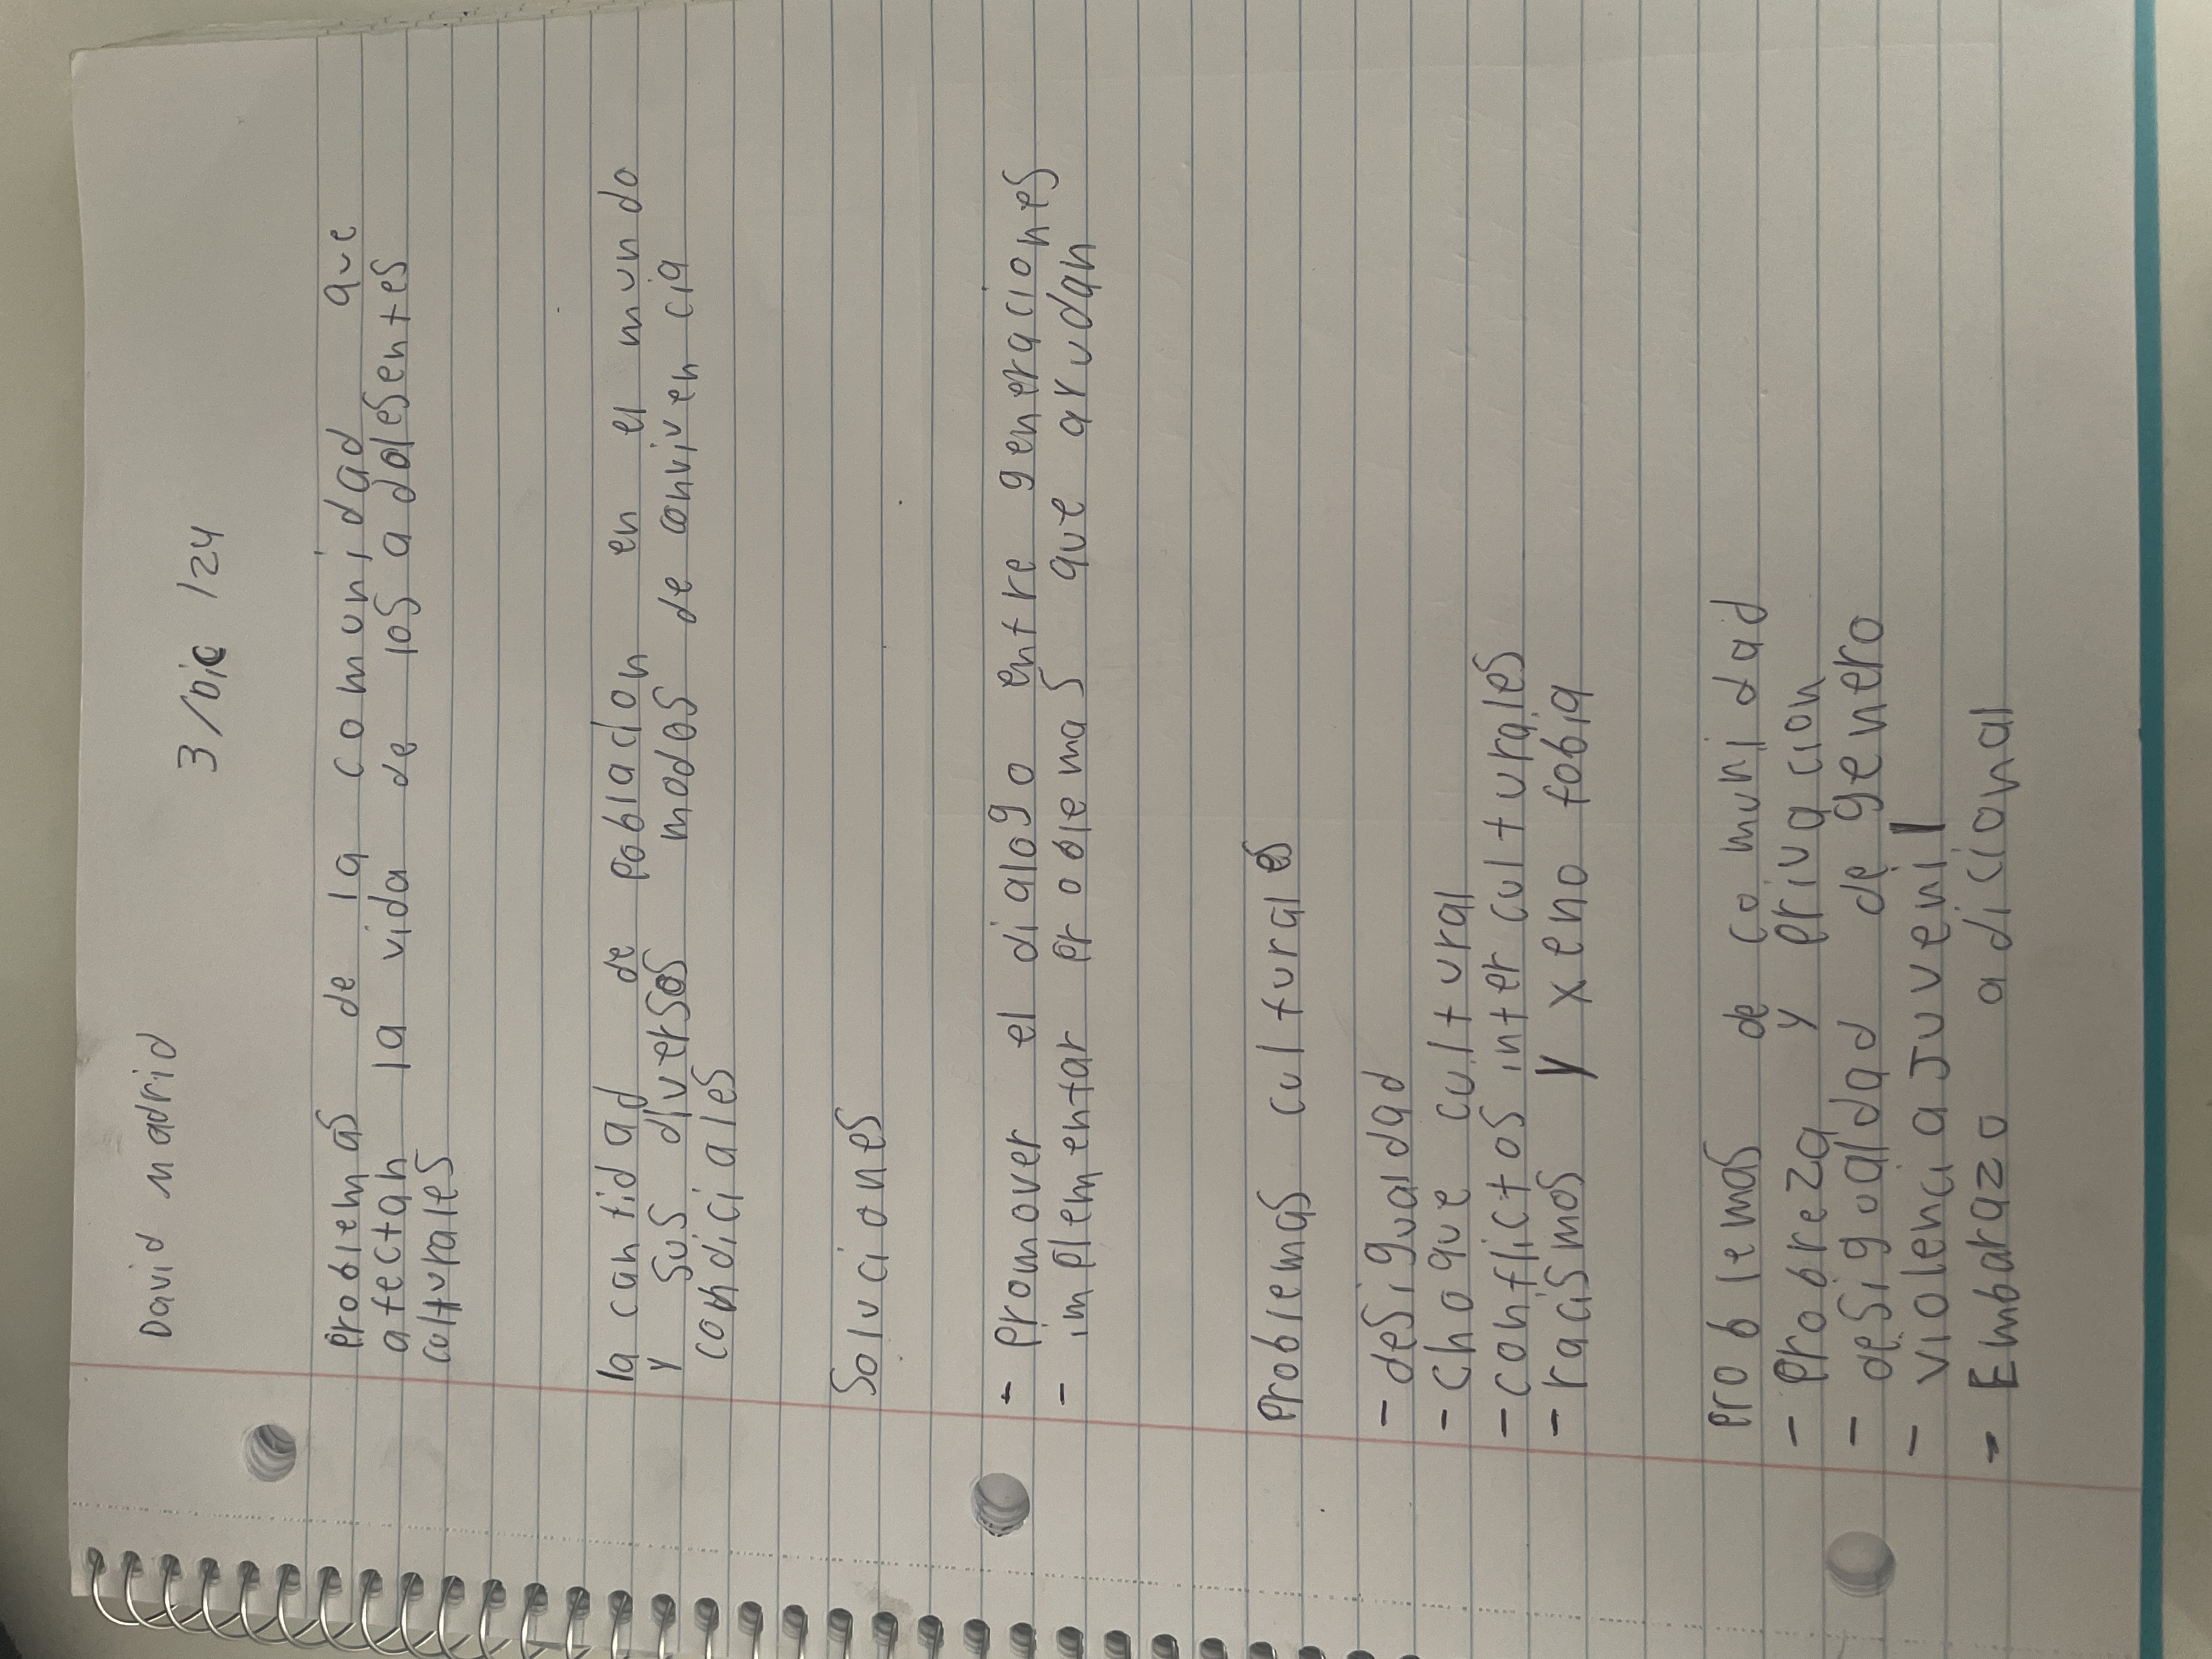 David madrid
3/Dic/24
problemas de la comunidad que
afectan la vida de los adolesentes
culturales
la cantidad de poblacion en el mundo
y sus diversos modos de convivencia
condiciales
Soluciones
- promover el dialogo entre generaciones
- implementar problemas que ayudan
problemas culturales
- desigualdad
- choque cultural
- conflictos interculturales
- racismos y xenofobia
problemas de comunidad
- probreza y privacion
- desigualdad de genero
- violencia Juvenil
- Embarazo adicional